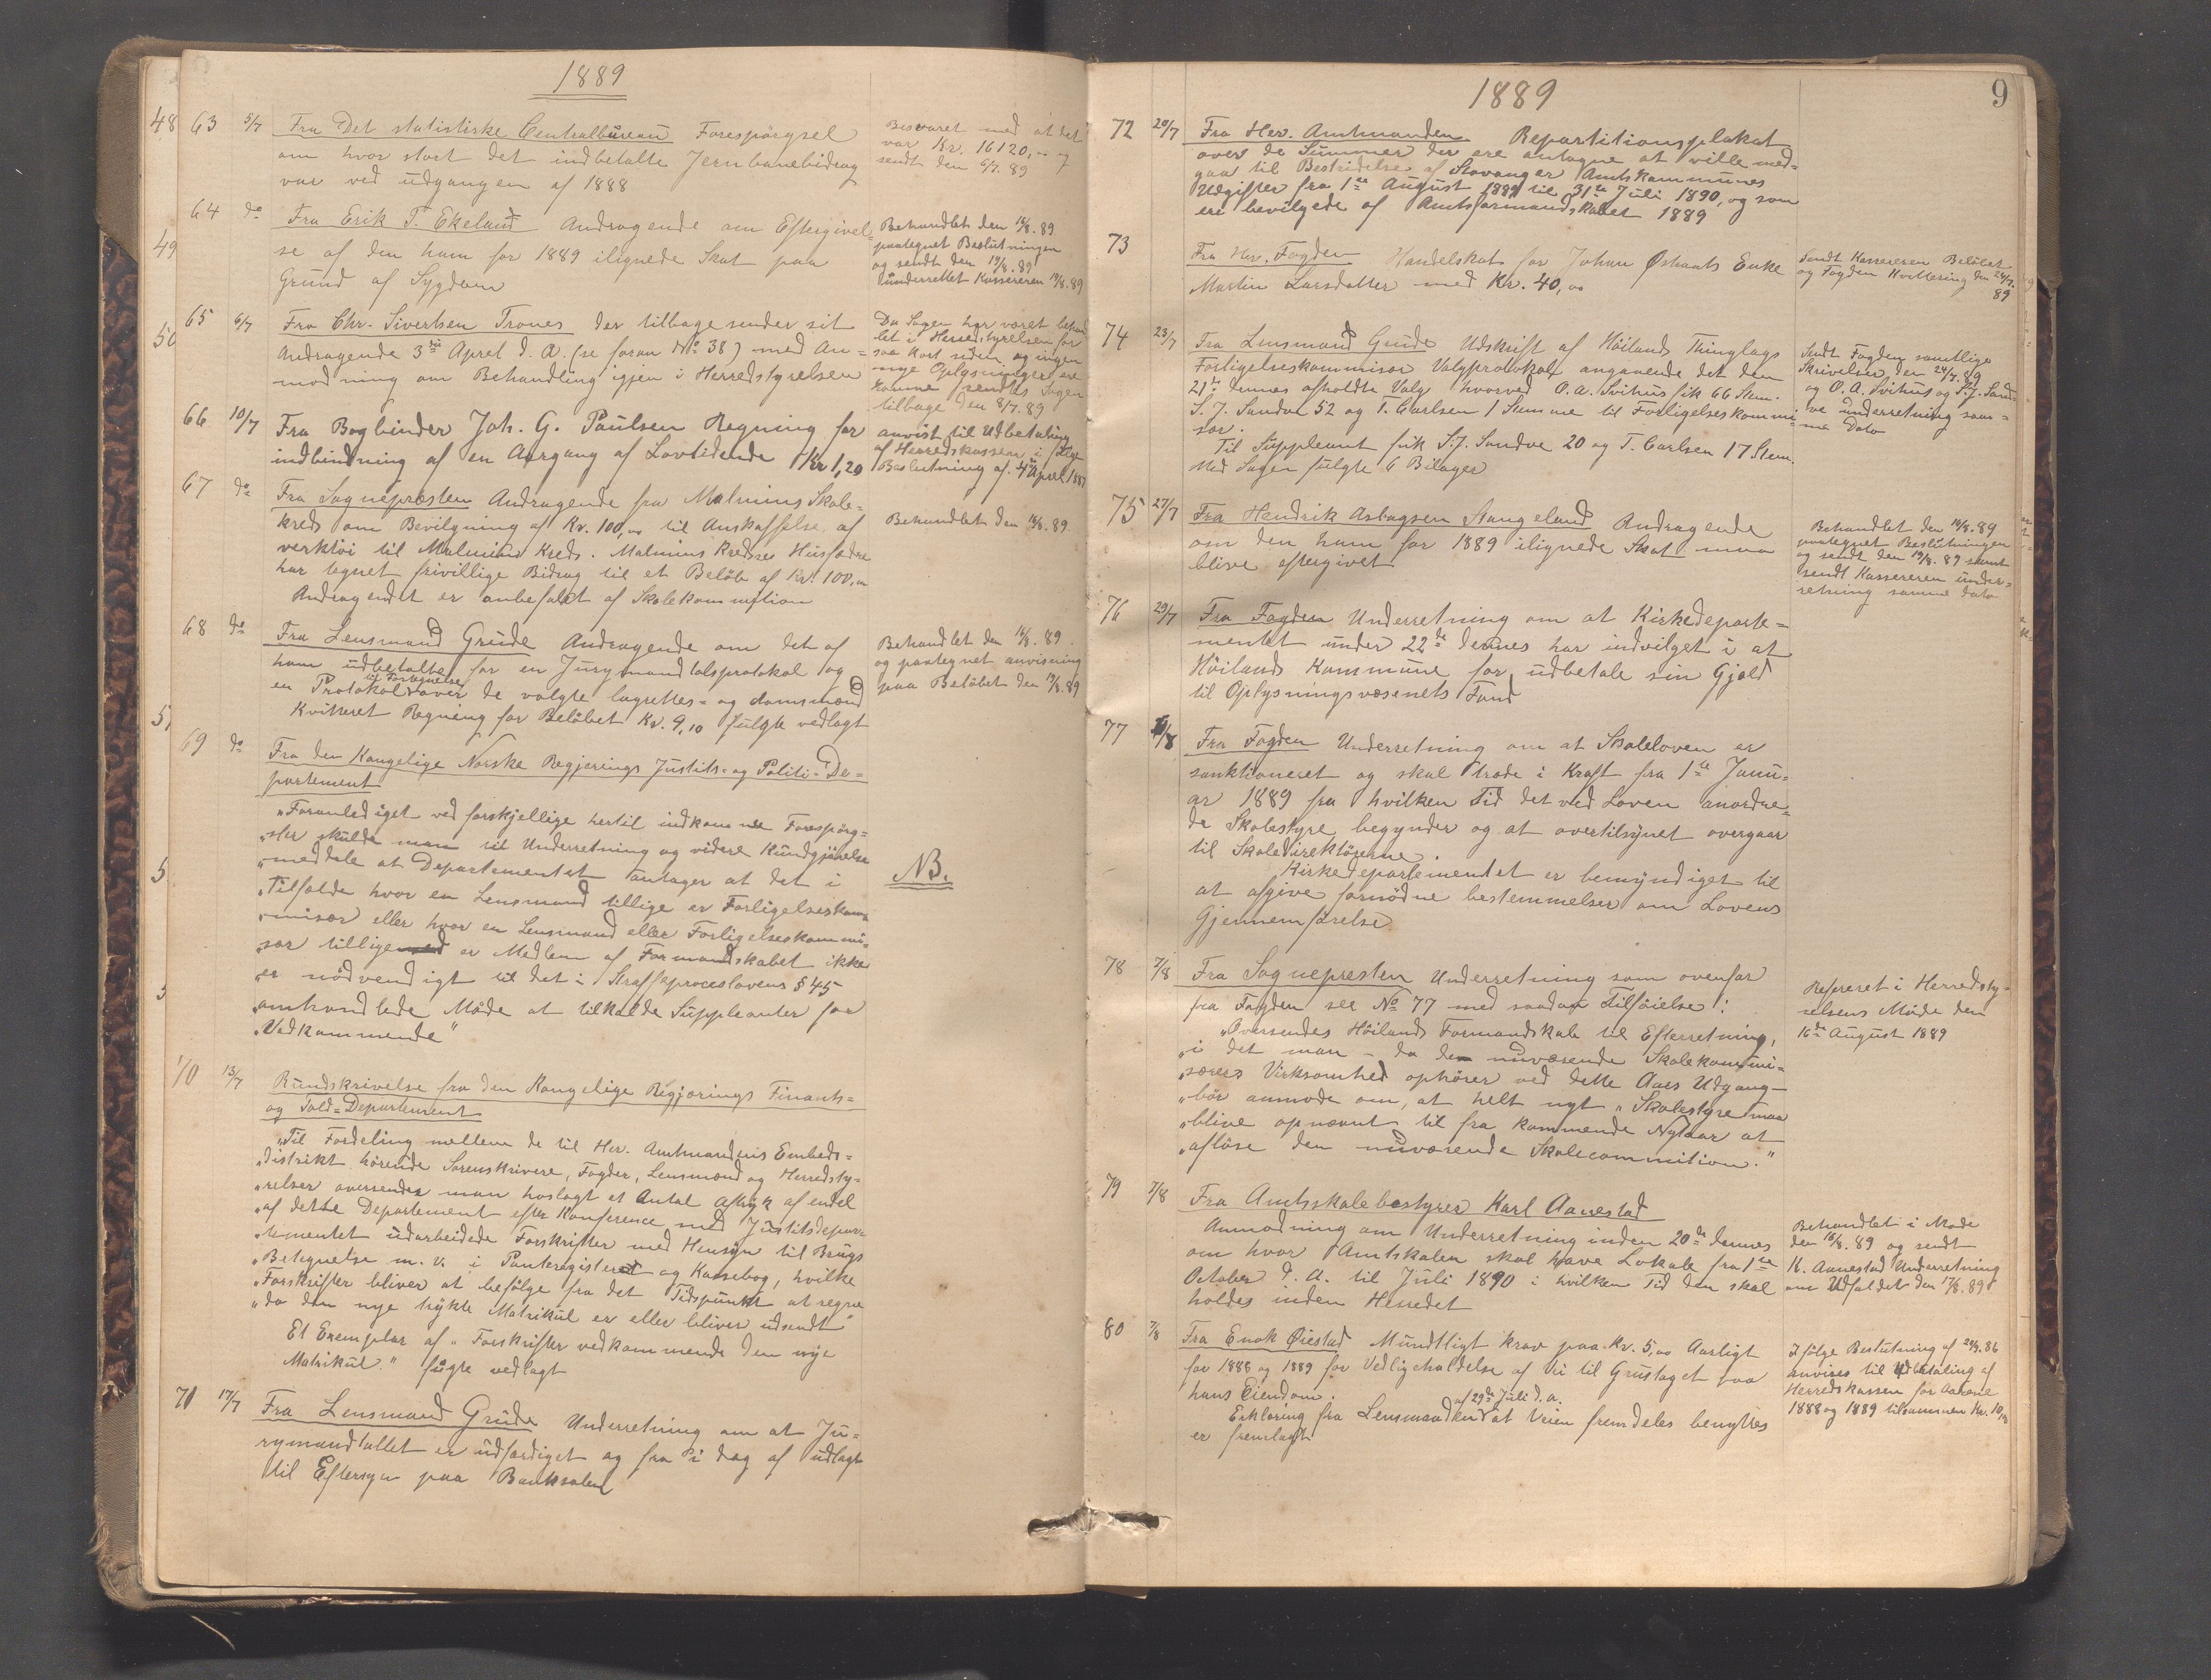 1889
48
63 5/7 Fra Det statistiske Centralbureau Forespørgsel
om hvor stort det indbetalte Jernbanebidrag
var ved udgangen af 1888
Besvaret med at det
var Kr. 16120,-
sendt den 6/7. 89
49
64 do Fra Erik T. Ekeland Andragende om Eftergivel=
se af den ham for 1889 ilignede Skat paa
Grund af Sygdom
Behandlet den 16/8. 89
paategnet Beslutningen
og sendt den 19/8. 89
underrettet Kassereren 19/8. 89
50
65 6/7 Fra Chr. Sivertsen Trones der tilbagesender sit
Andragende 3die April d. A. (se foran No 38) med An=
modning om Behandling igjen i Herredstyrelsen
Da Sagen har været behand
let i Herredstyrelsen for
saa kort siden og ingen
nye Oplysninger ere
komne sendtes Sagen
tilbage den 8/7. 89
66 10/7 Fra Bogbinder Joh. G. Paulsen Regning for
indbindning af en Aargang af Lovtidende Kr 1,20
anvist til Udbetaling
af Herredskassen i Følge
Beslutning af 4de April 1887
67 do Fra Sognepresten Andragende fra Malmins Skole=
kreds om Bevilgning af Kr. 100,00 til Anskaffelse af
verktøi til Malmins Kreds. Malmins Kredses Husfædre
har tegnet frivillige Bidrag til et Beløb af Kr. 100,00
Andragendet er anbefalet af Skolekommistion
Behandlet den 16/8. 89
68 do Fra Lensmand Grude Andragende om det af
ham udbetalte for en Jurymandtalsprotokol og
til Fortegnelse
en Protokol over de valgte lagrettes= og domsmænd
Kvitteret Regning for Beløbet Kr. 9,10 fulgte vedlagt
Behandlet den 16/8. 89.
og paategnet anvisning
paa Beløbet den 17/8. 89
51
69 do Fra den Kongelige Norske Regjerings Justits= og Politi=De=
partement
"Foranlediget ved forskjellige hertil indkomne Forespørg=
"sler skulde man til Underretning og videre Kundgjørelse
"meddele at Departementet antager at det i
"Tilfælde hvor en Lensmand tillige er Forligelseskom
"misær eller hvor en Lensmand eller Forligelseskommi=
"sær tilligemed er Medlem af Formandskabet ikke
"er nødvendigt til det i Straffeproceslovens § 45
"omhandlede Møde at tilkalde Suppleanter for
"Vedkommende"
NB.
70 13/7 Rundskrivelse fra den Kongelige Regjerings Finants=
og Told=Departement
"Til Fordeling mellem de til Hr. Amtmandens Embeds=
"distrikt hørende Sorenskrivere, Fogder, Lensmænd og Herredsty=
"relser oversendes man hoslagt et Antal Aftryk af endel
"af dette Departement efter Konference med Justitsdepar=
"tementet udarbeidede Forskrifter med Hensyn til Brugs
"Betegnelse m. v. i Panteregisteret og Kassebog, hvilke
"Forskrifter bliver at befølge fra det Tidspunkt at regne
"da den nye trykte Matrikul er eller bliver udsendt"
Et Exemplar af "Forskrifter vedkommende den nye
Matrikul" fulgte vedlagt
71 17/7 Fra Lensmand Grude Underretning om at Ju=
rymandtallet er udfærdiget og fra i dag af udlagt
til Eftersyn paa Banksalen
1889
9
72 20/7 Fra Hr. Amtmanden Repartitionsplakat
over de Summer der ere antagne at ville med=
gaa til Bestridelse af Stavanger Amtskommunes
Udgifter fra 1ste August 1889 til 31te Juli 1890, og som
ere bevilgede af Amtsformandskabet 1889
73 Fra Hr. Fogden Handelskat for Johan Østraats Enke
Martin Larsdatter med Kr. 40,00
Sendt Kassereren Beløbet
og Fogden Kvittering den 24/7.
89
74 23/7 Fra Lensmand Grude Udskrift af Høilands Thinglags
Forligelseskommisær Valgprotokol angaaende det den
21de dennes afholdte Valg hvorved O. A. Svihus fik 66 Stem.
S. J. Sandve 52 og T. Carlsen 1 Stemme til Forligelseskommi=
sær.
Til Suppleant fik S. J. Sandve 20 og T. Carlsen 17 Stem.
Med Sagen fulgte 6 Bilager
Sendt Fogden samtlige
Skrivelser den 24/7. 89
og O. A. Svihus og S. J. Sand
ve underretning sam=
me Dato
75 27/7 Fra Hendrik Asbogsen Stangeland Andragende
om den ham for 1889 ilignede Skat maa
blive eftergivet
Behandlet den 16/8. 89
paategnet Beslutningen
og sendt den 19/8. 89 samt
sendt Kassereren under=
retning samme dato
76 29/7 Fra Fogden Underretning om at Kirkedeparte=
mentet under 22de dennes har indvilget i at
Høilands Kommune for udbetale sin Gjæld
til Oplysningsvæsenets Fond
77 6/8 Fra Fogden Underretning om at Skoleloven er
sanktioneret og skal træde i Kraft fra 1ste Janu=
ar 1889 fra hvilken Tid det ved Loven anordne=
de Skolestyre begynder og at overtilsynet overgaar
til Skoledirektørerne.
Kirkedepartementet er bemyndiget til
at afgive fornødne bestemmelser om Lovens
Gjennemførelse
78 7/8 Fra Sognepresten Underretning som ovenfor
fra Fogden see No 77 med saadan Tilføielse:
"Oversendes Høilands Formandskab til Efterretning,
"i det man - da den nuværende Skolekommi=
"særers Virksomhed ophører ved dette Aars Udgang -
"bør anmode om, at helt nyt "Skolestyre maa
"blive opnævnt til fra kommende Nytaar at
"afløse den nuværende Skolecommition."
Refereret i Herredsty=
relsens Møde den
16de August 1889
79 7/8 Fra Amtsskolebestyrer Karl Aanestad
Anmodning om Underretning inden 20de dennes
om hvor Amtskolen skal have Lokale fra 1ste
October d. A. til Juli 1890 i hvilken Tid den skal
holdes inden Herredet
Behandlet i Møde
den 16/8. 89 og sendt
K. Aanestad Underretning
om Udfaldet den 17/8. 89
80 7/8 Fra Enok Øiestad Mundtligt krav paa Kr. 5,00 Aarligt
for 1888 og 1889 for Vedligeholdelse af Vei til Grustaget paa
hans Eiendom.
af 29de Juli d. a.
Erklæring fra Lensmanden at Veien fremdeles benyttes
er fremlagt
Ifølge Beslutning af 24/9. 86
anvises til Udbetaling af
Herredskassen for Aarene
1888 og 1889 tilsammen Kr. 10,00